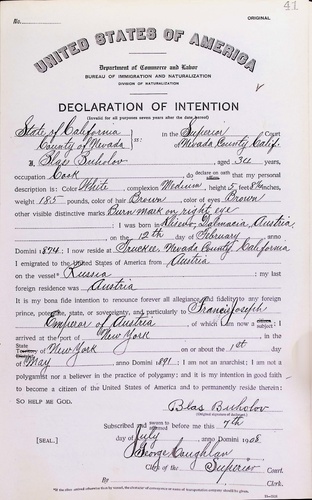 No.
ORIGINAL
41
UNITED STATES OF AMERICA
Department of Commerce and Labor
BUREAU OF IMMIGRATION AND NATURALIZATION
DIVISION OF NATURALIZATION
DECLARATION OF INTENTION
(Invalid for all purposes seven years after the date hereof)
State of California
County of Nevada ss:
In the Superior Court
of Nevada County Calif.
I, Blas Buholov, aged 34 years,
occupation Cook, do declare on oath that my personal
description is: Color White, complexion Medium, height 5 feet 8¾ inches,
weight 185 pounds, color of hair Brown, color of eyes Brown
other visible distinctive marks Burn mark on right eye
; I was born in Dalmacia, Austria
on the 12th day of February, anno
Domini 1874; I now reside at Truckee, Nevada County, California
I emigrated to the United States of America from Austria
on the vessel Russia; my last
foreign residence was Austria
It is my bona fide intention to renounce forever all allegiance and fidelity to any foreign
prince, potentate, state, or sovereignty, and particularly to Francis Joseph
Emperor of Austria, of which I am now a subject; I
arrived at the port of New York, in the
State of New York on or about the 1st day
May, anno Domini 1891; I am not an anarchist; I am not a
polygamist nor a believer in the practice of polygamy; and it is my intention in good faith
to become a citizen of the United States of America and to permanently reside therein:
SO HELP ME GOD.
Blas Buholov
(Original signature of declarant.)
Subscribed and sworn to before me this 7th
[SEAL.] day of July, anno Domini 1908
George Coughlan
Clerk of the Superior Court.
By , Clerk.